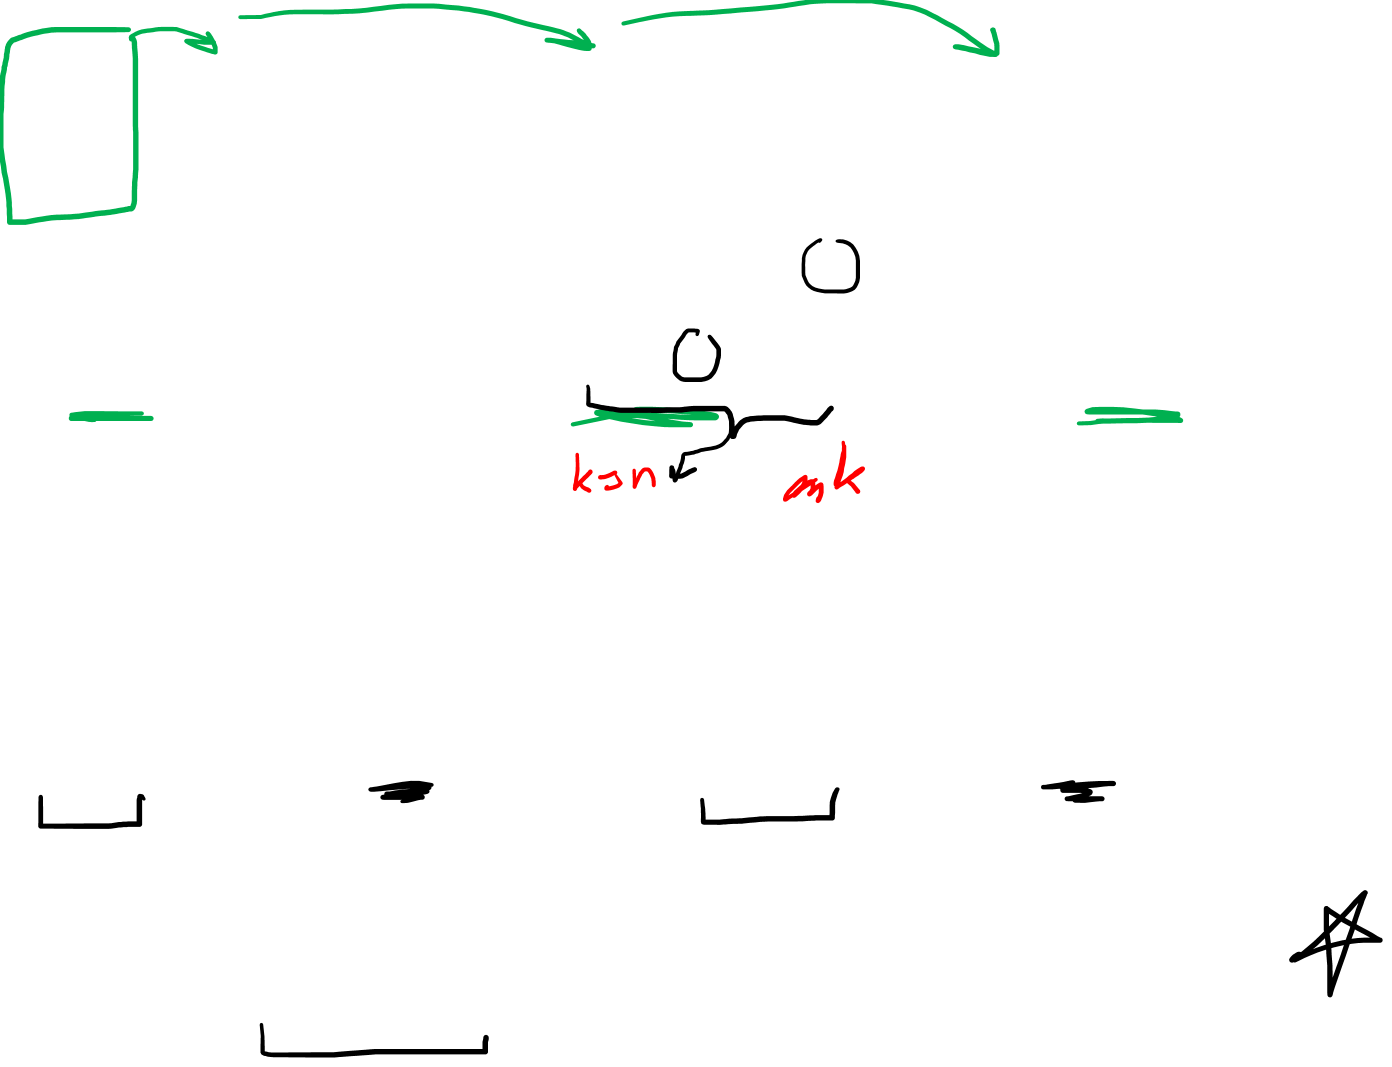 ksn
mk